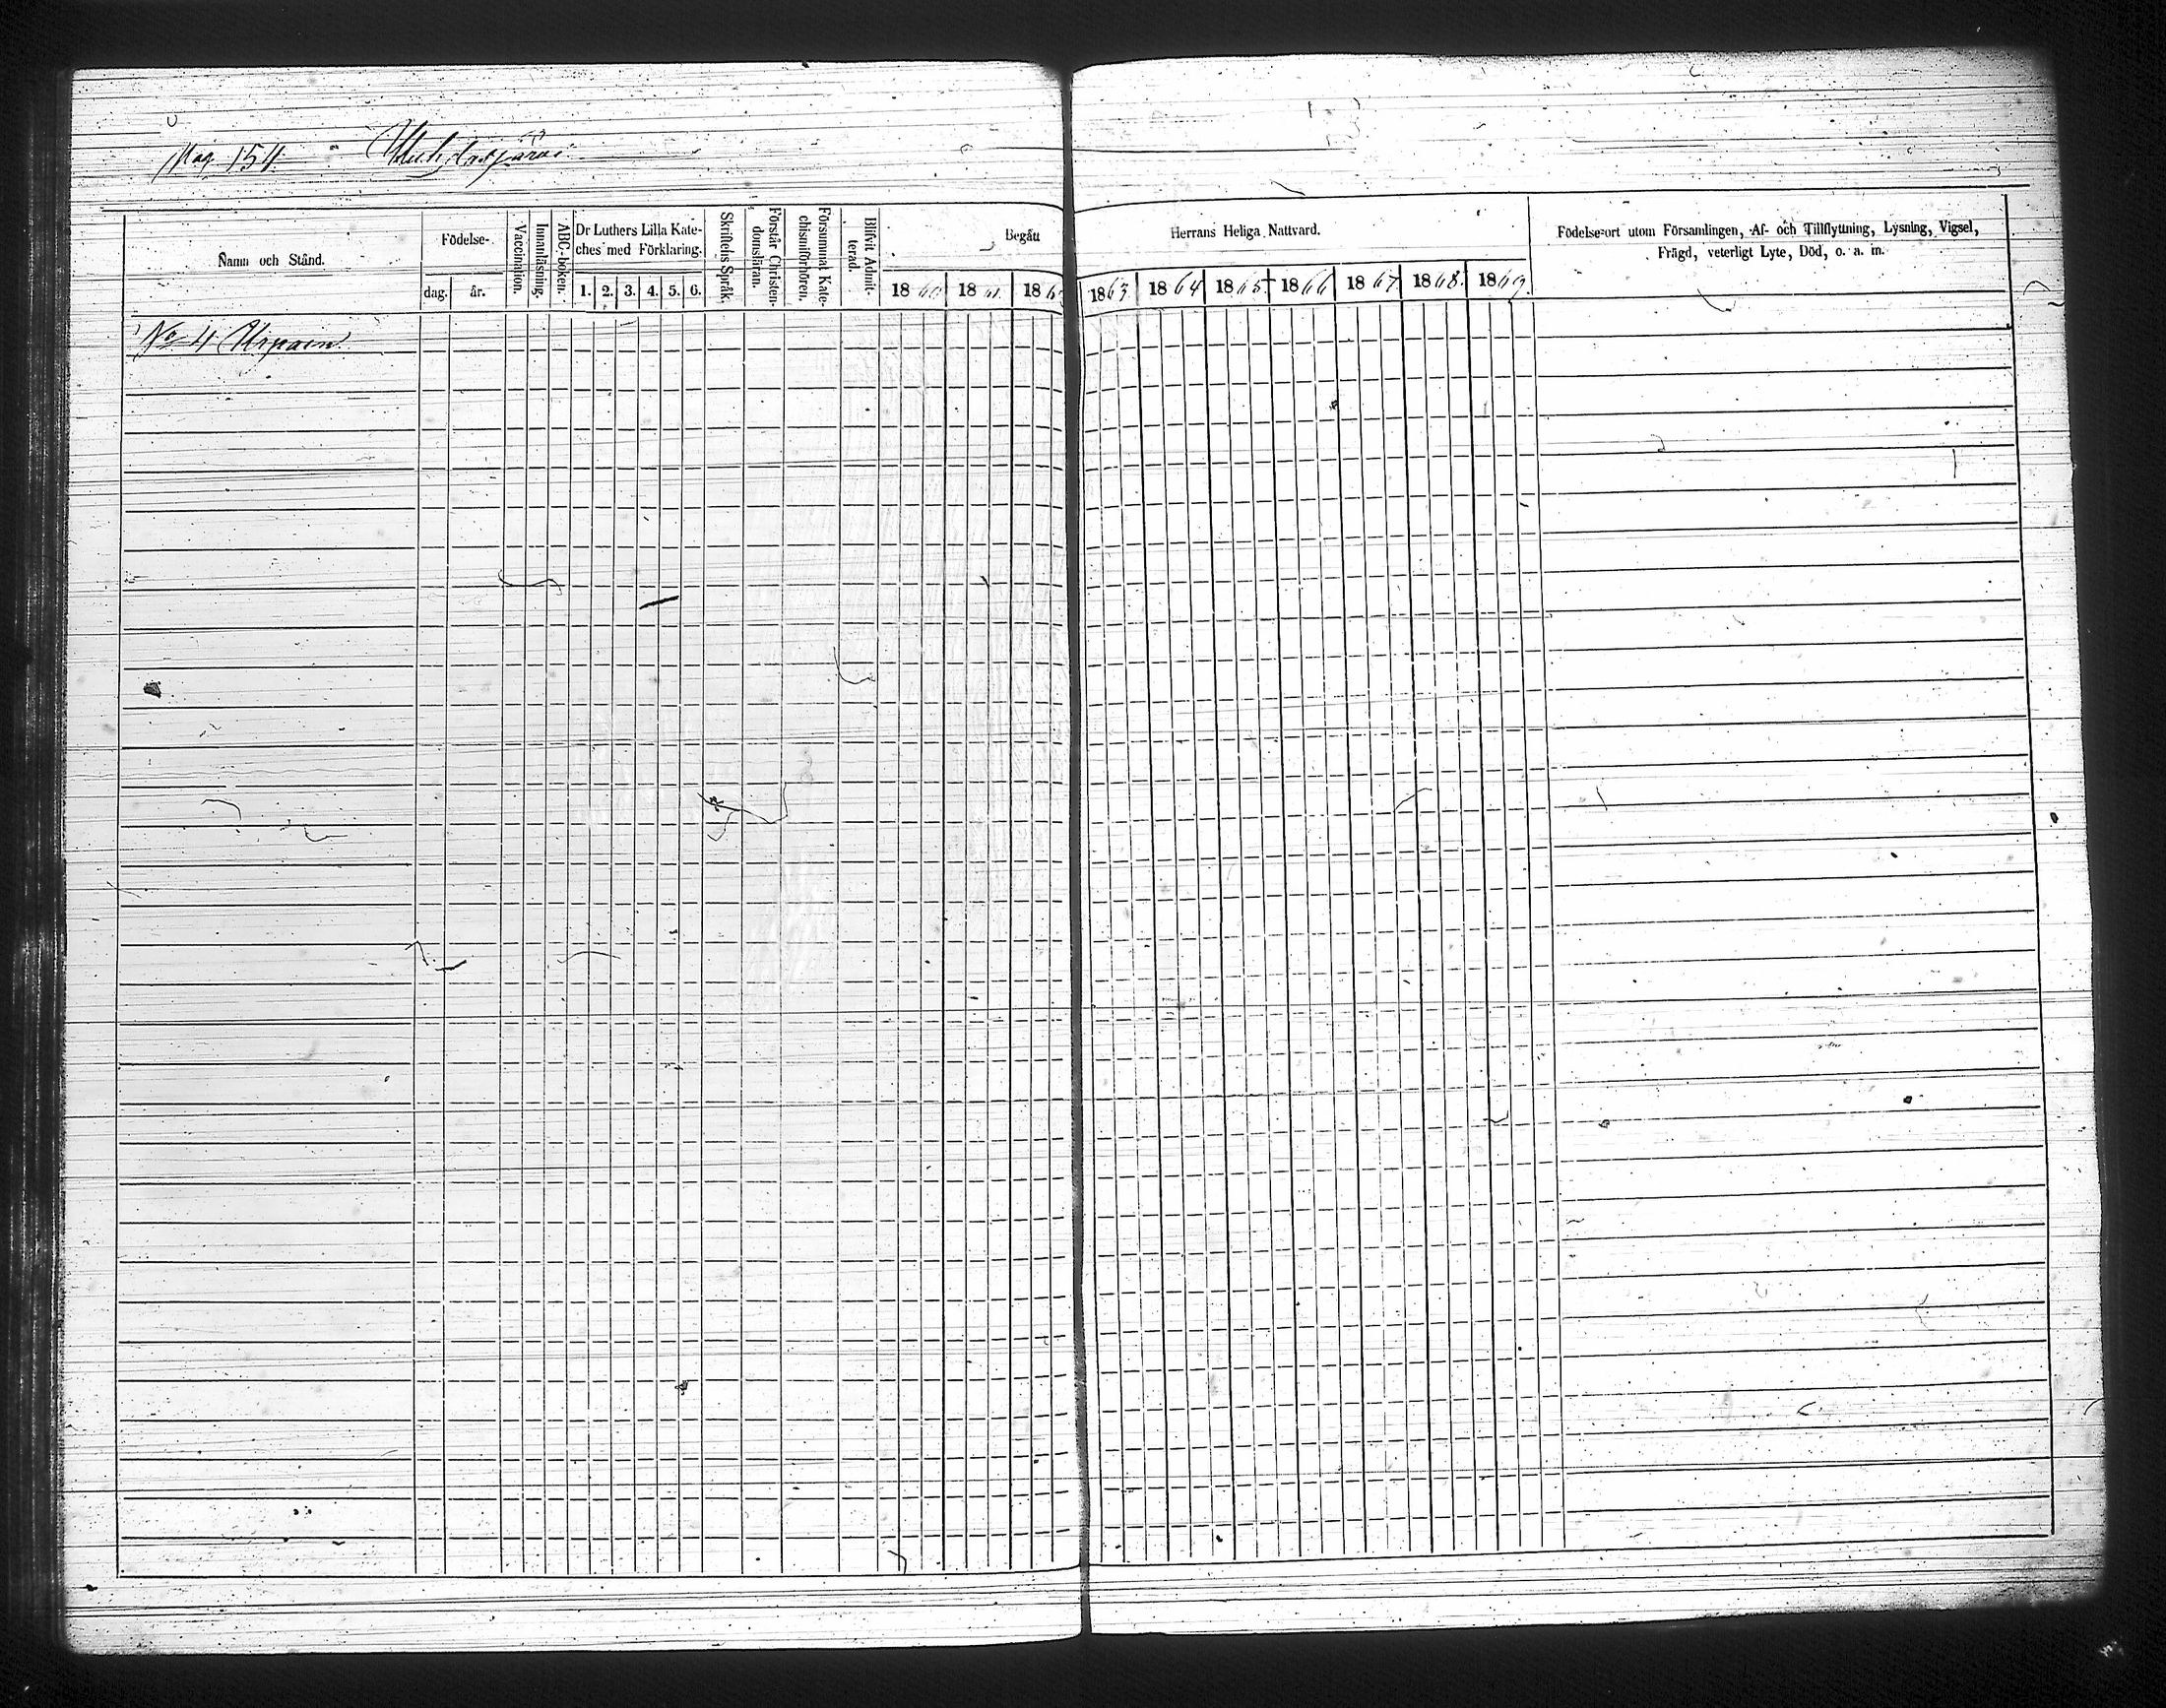 Pag 154.
Namn och Stånd.
Födelse-
dag.
år.
Vaccination.
Innanläsning.
ABC-boken.
Dr Luthers Lilla Kate-
ches med Förklaring.
1. 2. 3. 4. 5. 6.
Skriftens Språk.
Förstår Christen-
domsläran.
Försummat Kate-
chismiförhören.
Blifvit Admit-
terad.
Begått
Herrans Heliga Nattvard.
1860 1861 186
1863 1864 1865 1866 1867 1868. 1869.
Födelse-ort utom Församlingen, Af- och Tillflyttning, Lysning, Vigsel,
Frägd, veterligt Lyte, Död, o. a. m.
No 4